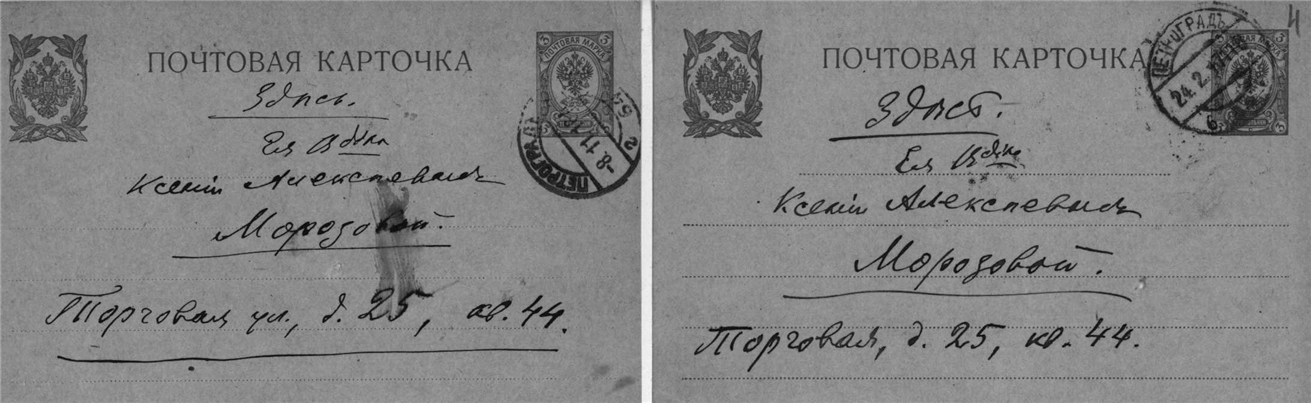 ПОЧТОВАЯ КАРТОЧКА
3 3
ПОЧТОВАЯ МАРКА
Здѣсь.
Ея Вдію
Ксеніи Алексѣевнѣ
Морозовой.
Торговая ул., д. 25, кв. 44.
ПЕТРОГРАД
-8.11
ПОЧТОВАЯ КАРТОЧКА
4
3
Здѣсь.
Ея Вдію
Ксеніи Алексѣевнѣ
Морозовой.
Торговая, д. 25, кв. 44.
ПЕТРОГРАДЪ
24.2.